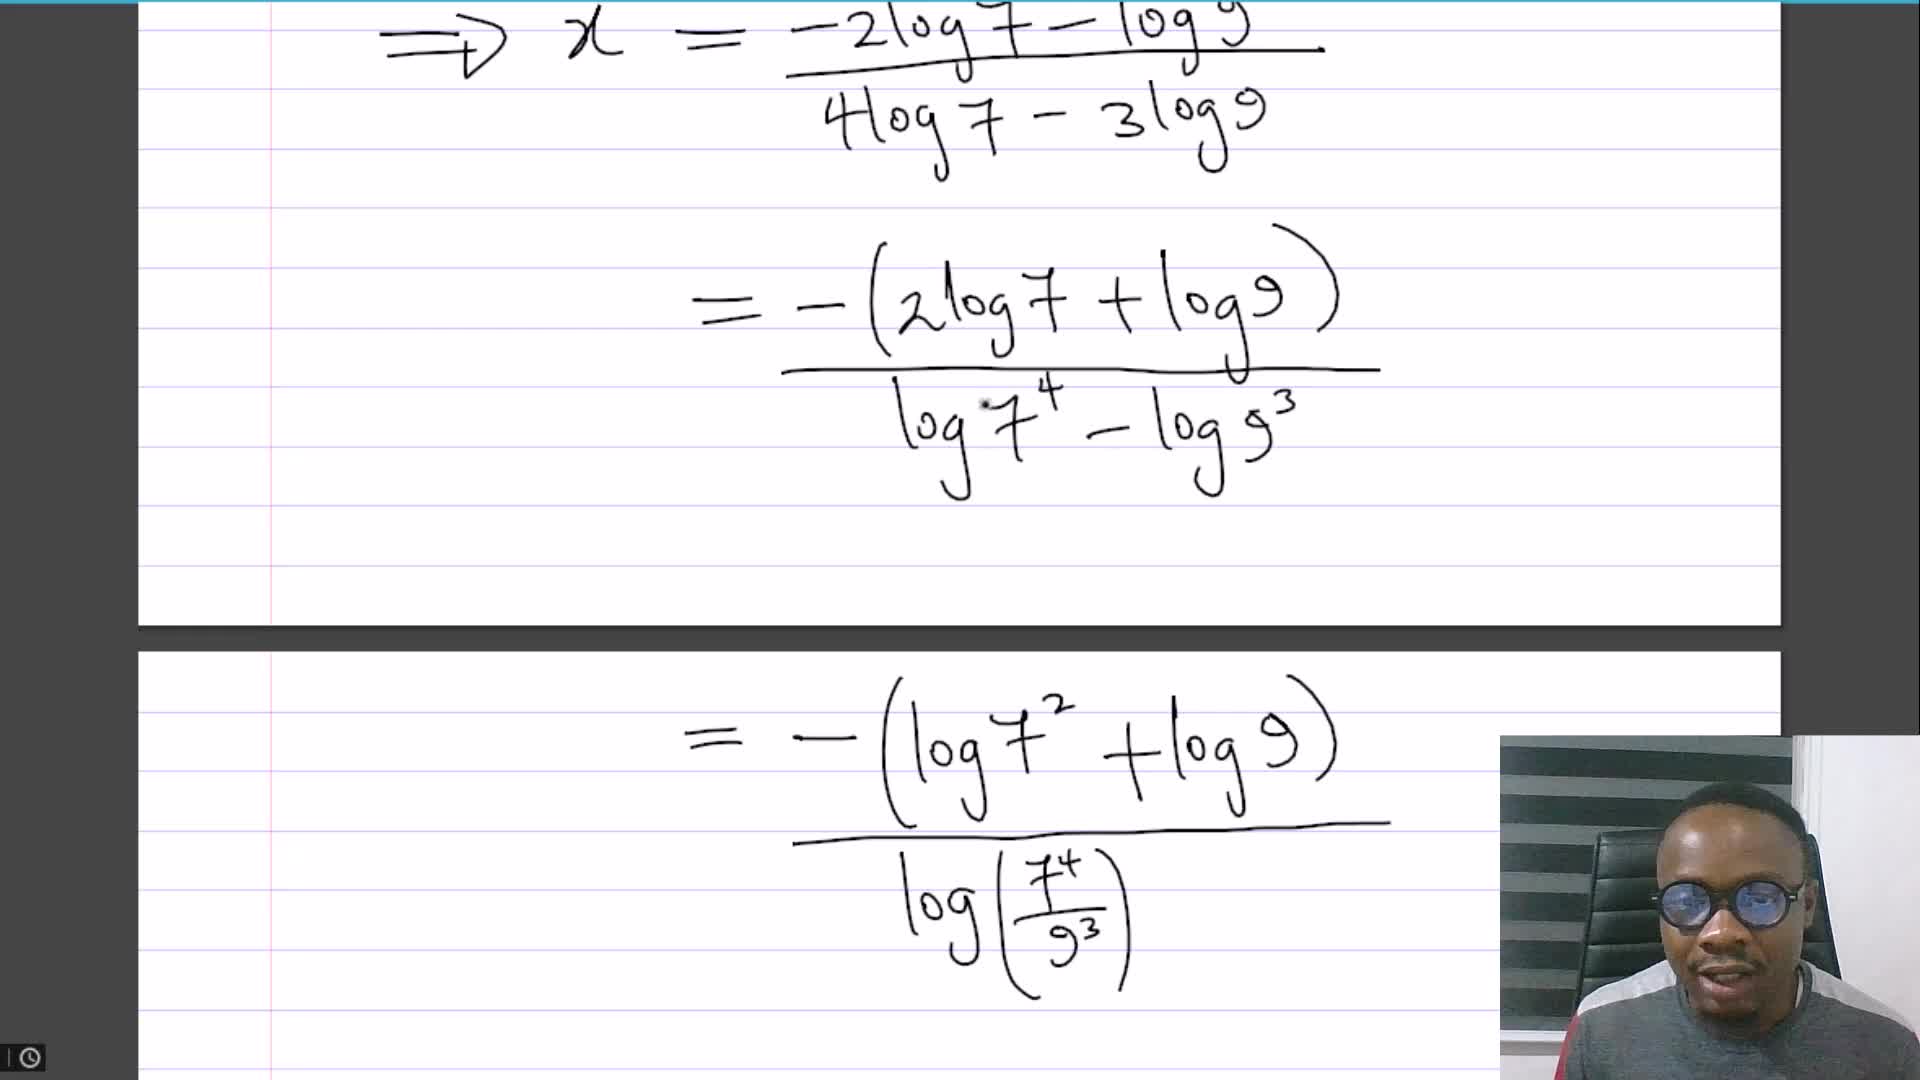 ⇒ x = -2log7 - log9
4log7 - 3log9
= -(2log7 + log9)
log7⁴ - log9³
= -(log7² + log9)
log(7⁴/9³)